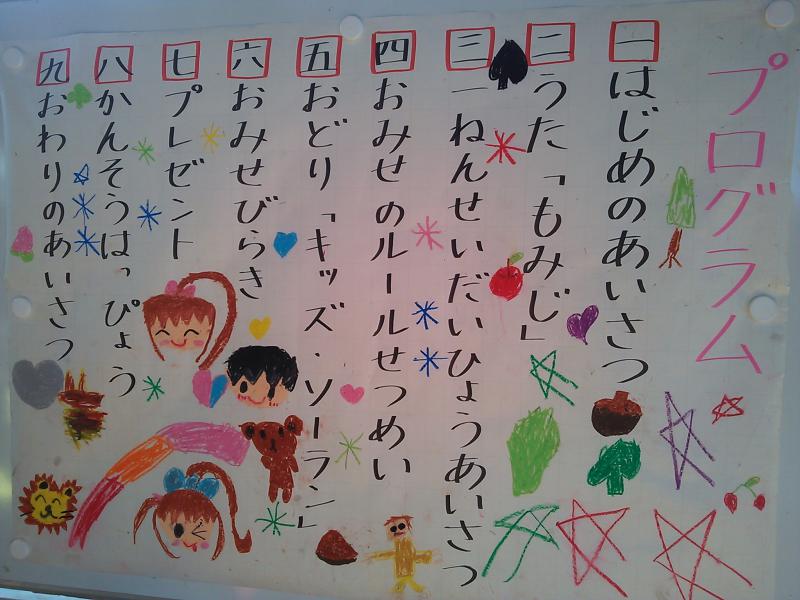 プログラム
一はじめのあいさつ
二うた「もみじ」
三一ねんせいだいひょうあいさつ
四おみせのルールせつめい
五おどり「キッズ・ソーラン」
六おみせびらき
七プレゼント
八かんそうはっぴょう
九おわりのあいさつ